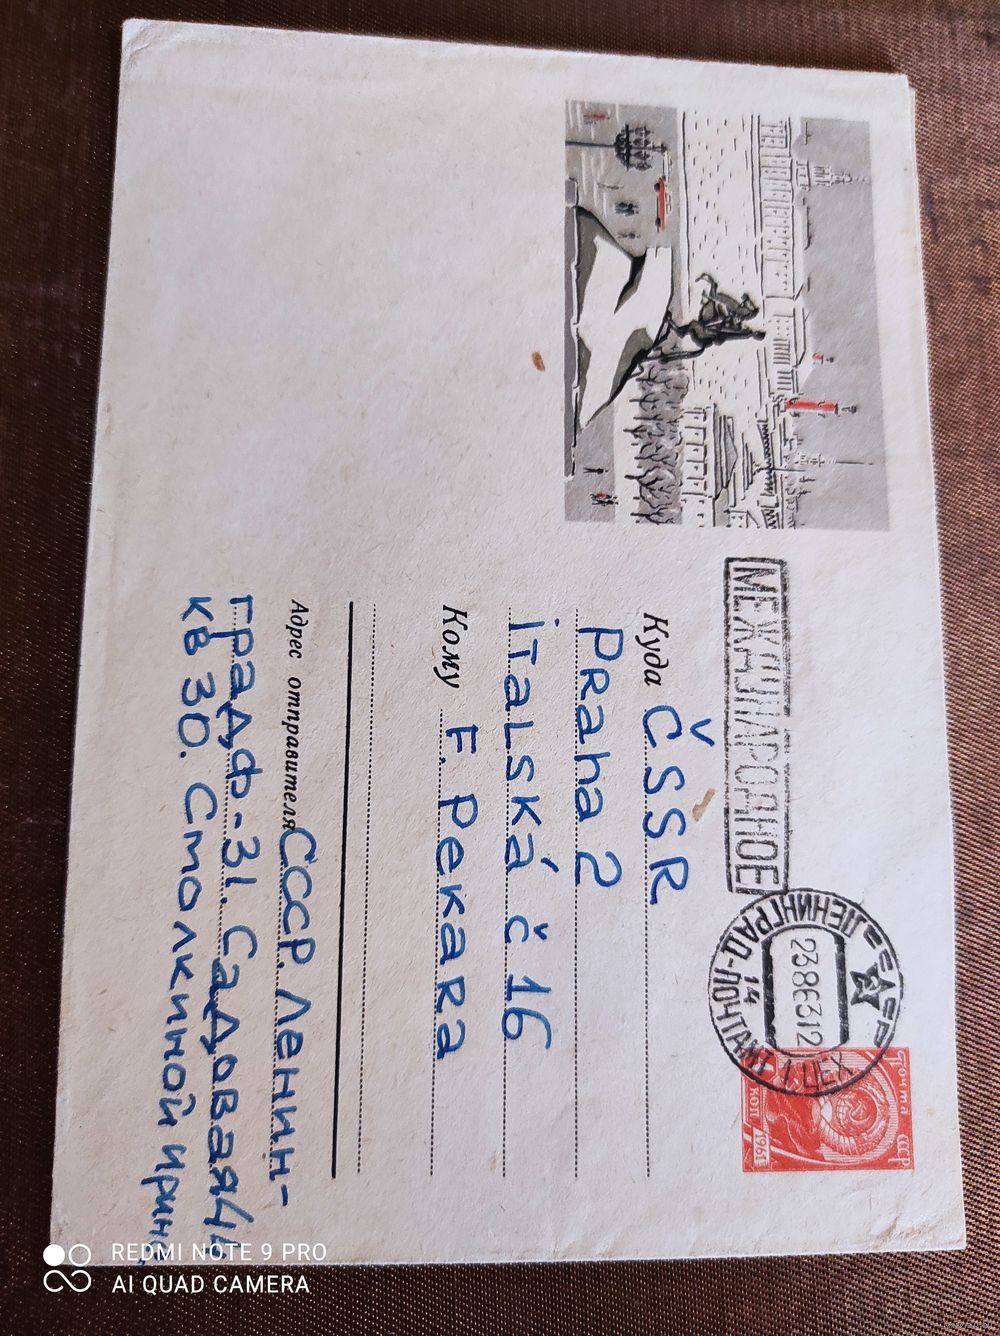 МЕЖДУНАРОДНОЕ
ЛЕНИНГРАД-ПОЧТАМТ 1 ЦЕХ
14
2386312
Почта СССР
КОП
1961
Куда ČSSR
Praha 2
italská č 16
Кому F. Pekara
Адрес отправителя СССР. Ленин-
град ф-31. Садовая 44
кв 30. Столкиной Ирине
REDMI NOTE 9 PRO
AI QUAD CAMERA